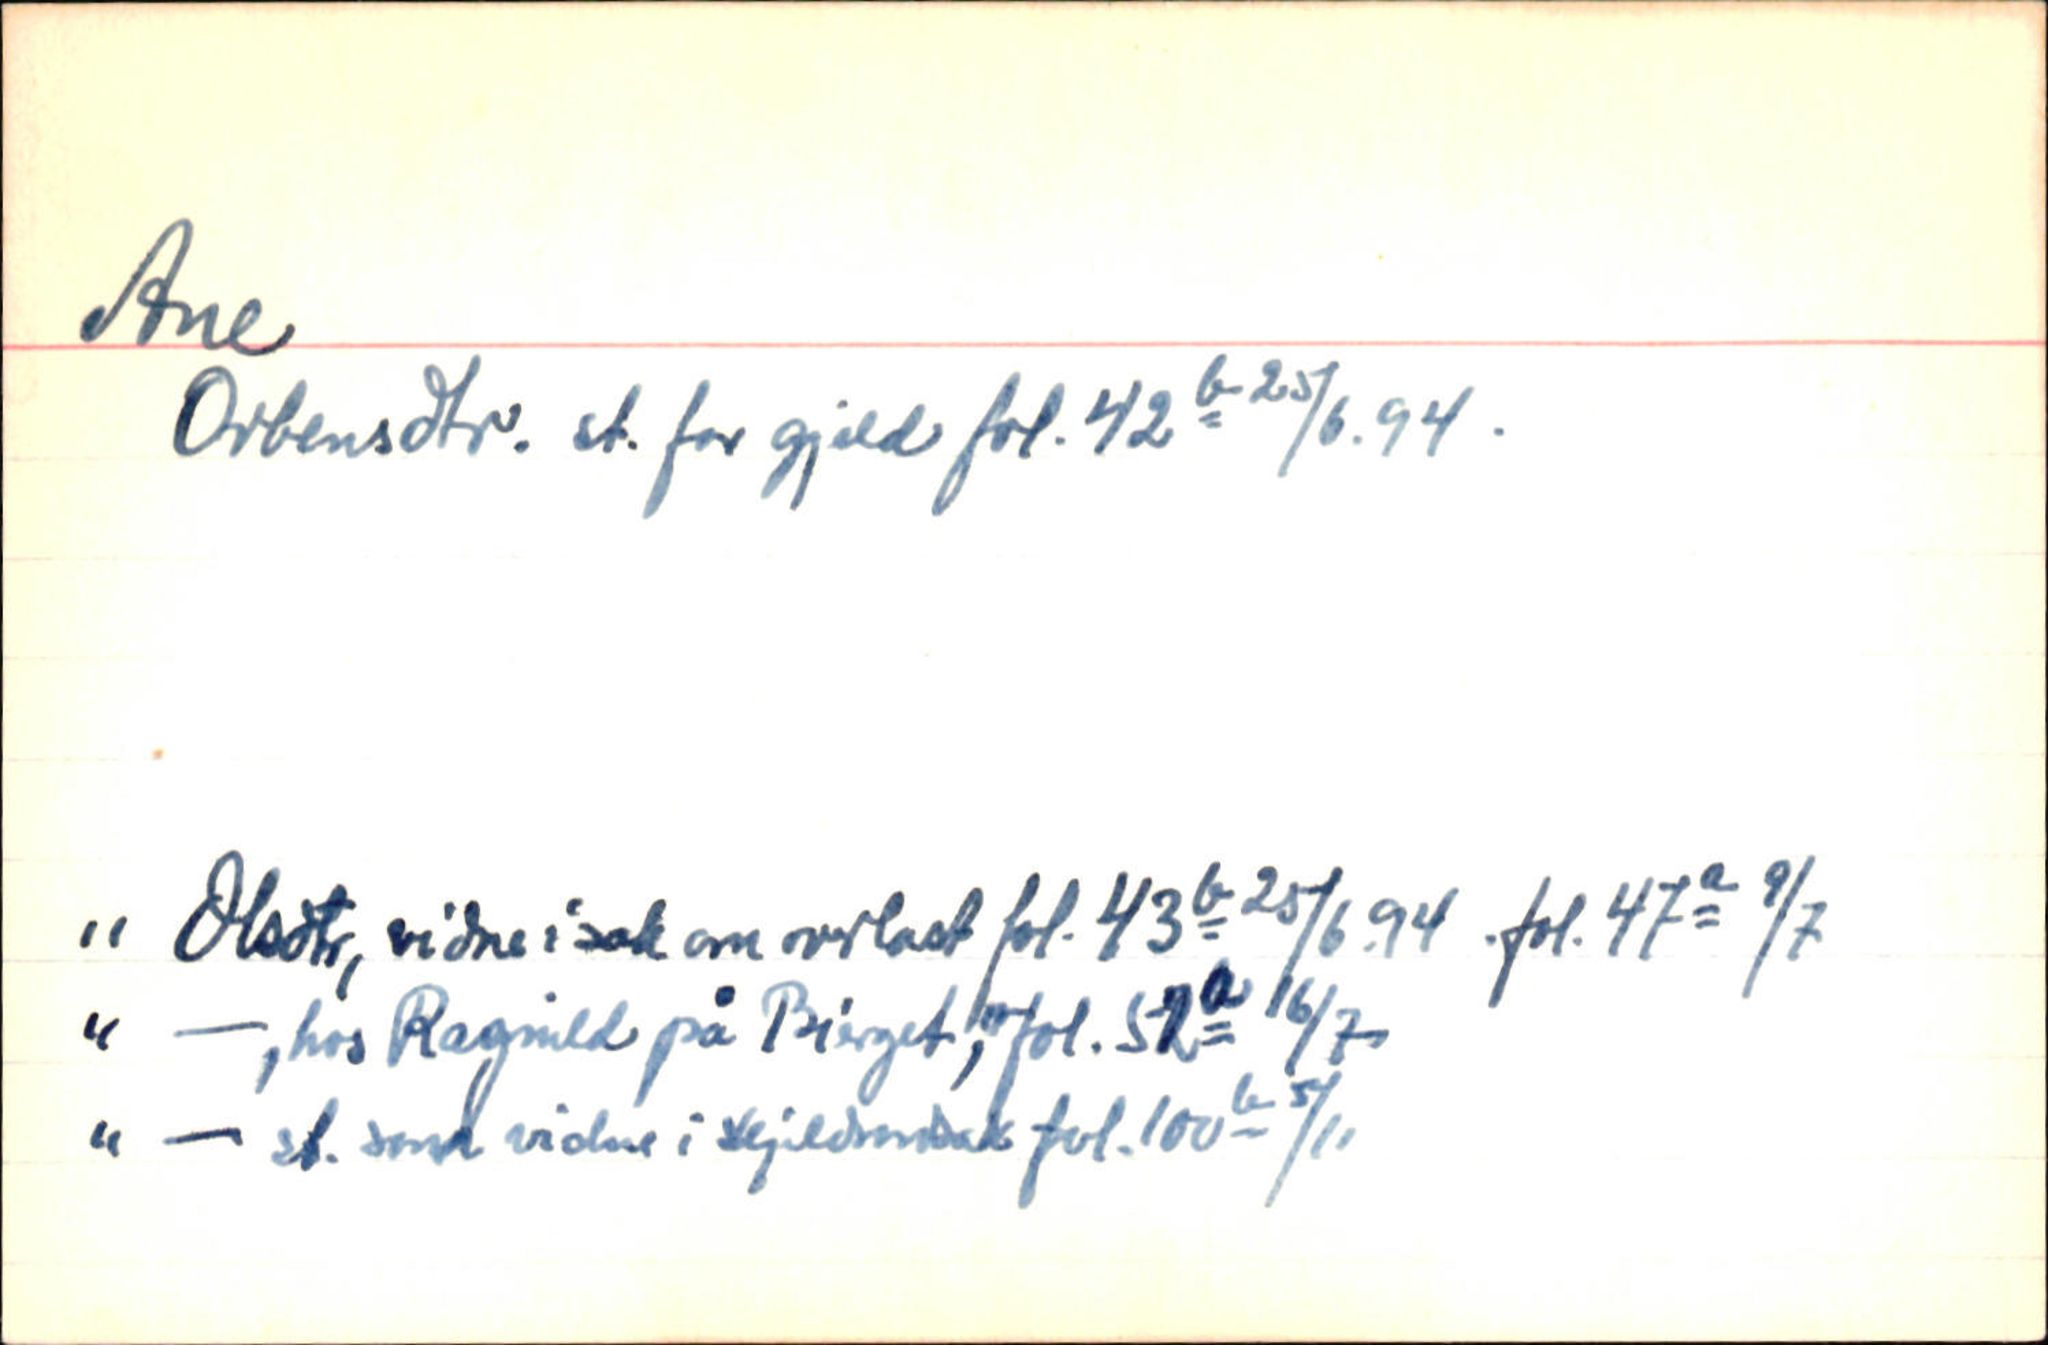 Ane
Orbensdtr. st. for gjeld fol. 42b 25/6.94.
" Olsdtr, vidne i sak om overlast fol. 43b 25/6.94. fol. 47a 9/7
" —, hos Ragnild på Bierget, fol. 52a 16/7
" — st. som vidne i skjeldsordsak fol. 100b 5/11